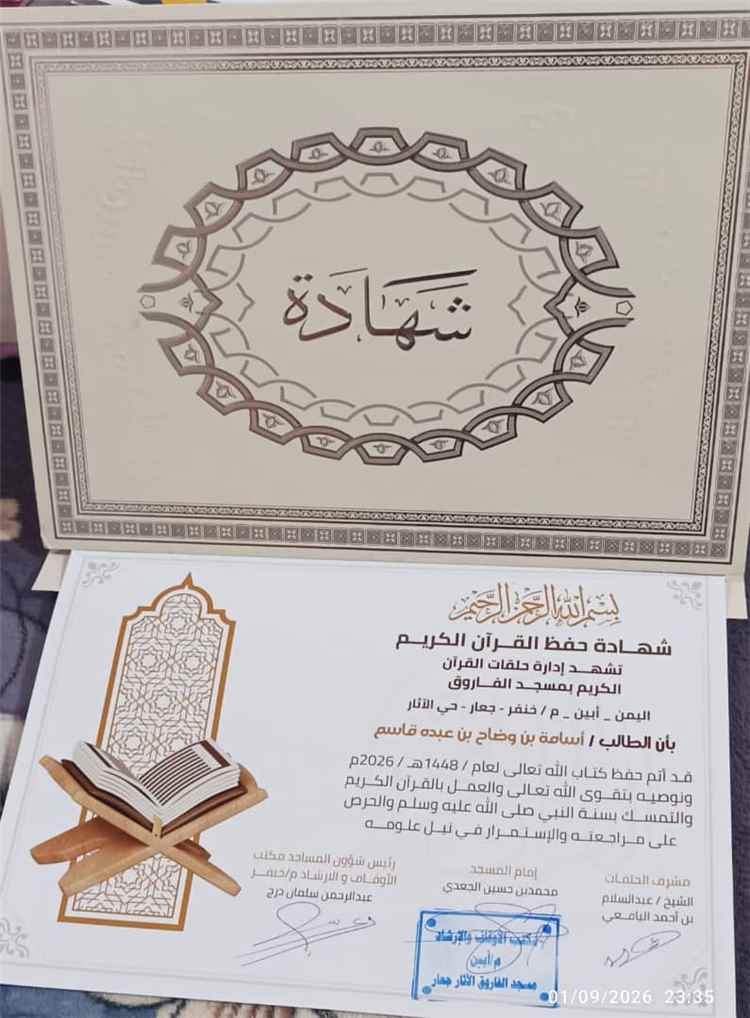 شهادة
بسم الله الرحمن الرحيم
شهادة حفظ القرآن الكريم
تشهد إدارة حلقات القرآن
الكريم بمسجد الفاروق
اليمن _ أبين _ م / خنفر - جعار - حي الآثار
بأن الطالب / أسامة بن وضاح بن عبده قاسم
قد أتم حفظ كتاب الله تعالى لعام / 1448هـ / 2026م
ونوصيه بتقوى الله تعالى والعمل بالقرآن الكريم
والتمسك بسنة النبي صلى الله عليه وسلم والحرص
على مراجعته والإستمرار في نيل علومه
مشرف الحلقات
الشيخ / عبدالسلام
بن أحمد اليافعي
إمام المسجد
محمدبن حسين الجعدي
رئيس شؤون المساجد مكتب
الأوقاف و الارشاد م/خنفر
عبدالرحمن سلمان درج
مكتب الأوقاف والإرشاد
م/أبين
مسجد الفاروق الآثار جعار
01/09/2026 23:35